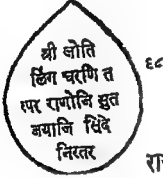 श्री जोति
लिंग चरणि त
त्पर राणोजि सुत
जयाजि सिंदे
निरंतर
६८